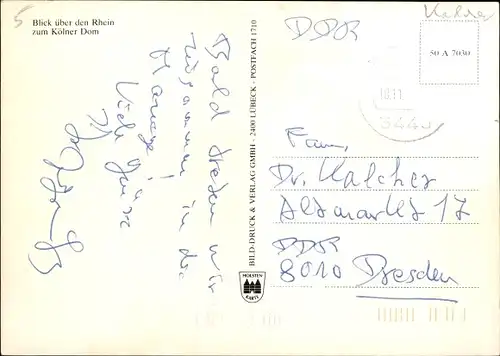 5
Blick über den Rhein
zum Kölner Dom
Bald stehen wir
zusammen in der
Viele Grüsse
BILD-DRUCK & VERLAG GMBH · 2400 LÜBECK · POSTFACH 1710
HOLSTEN
KARTE
DDR
50 A 7030
10.11.
Fam.
Dr. Kalcher
Altmarkt 17
DDR
8010 Dresden